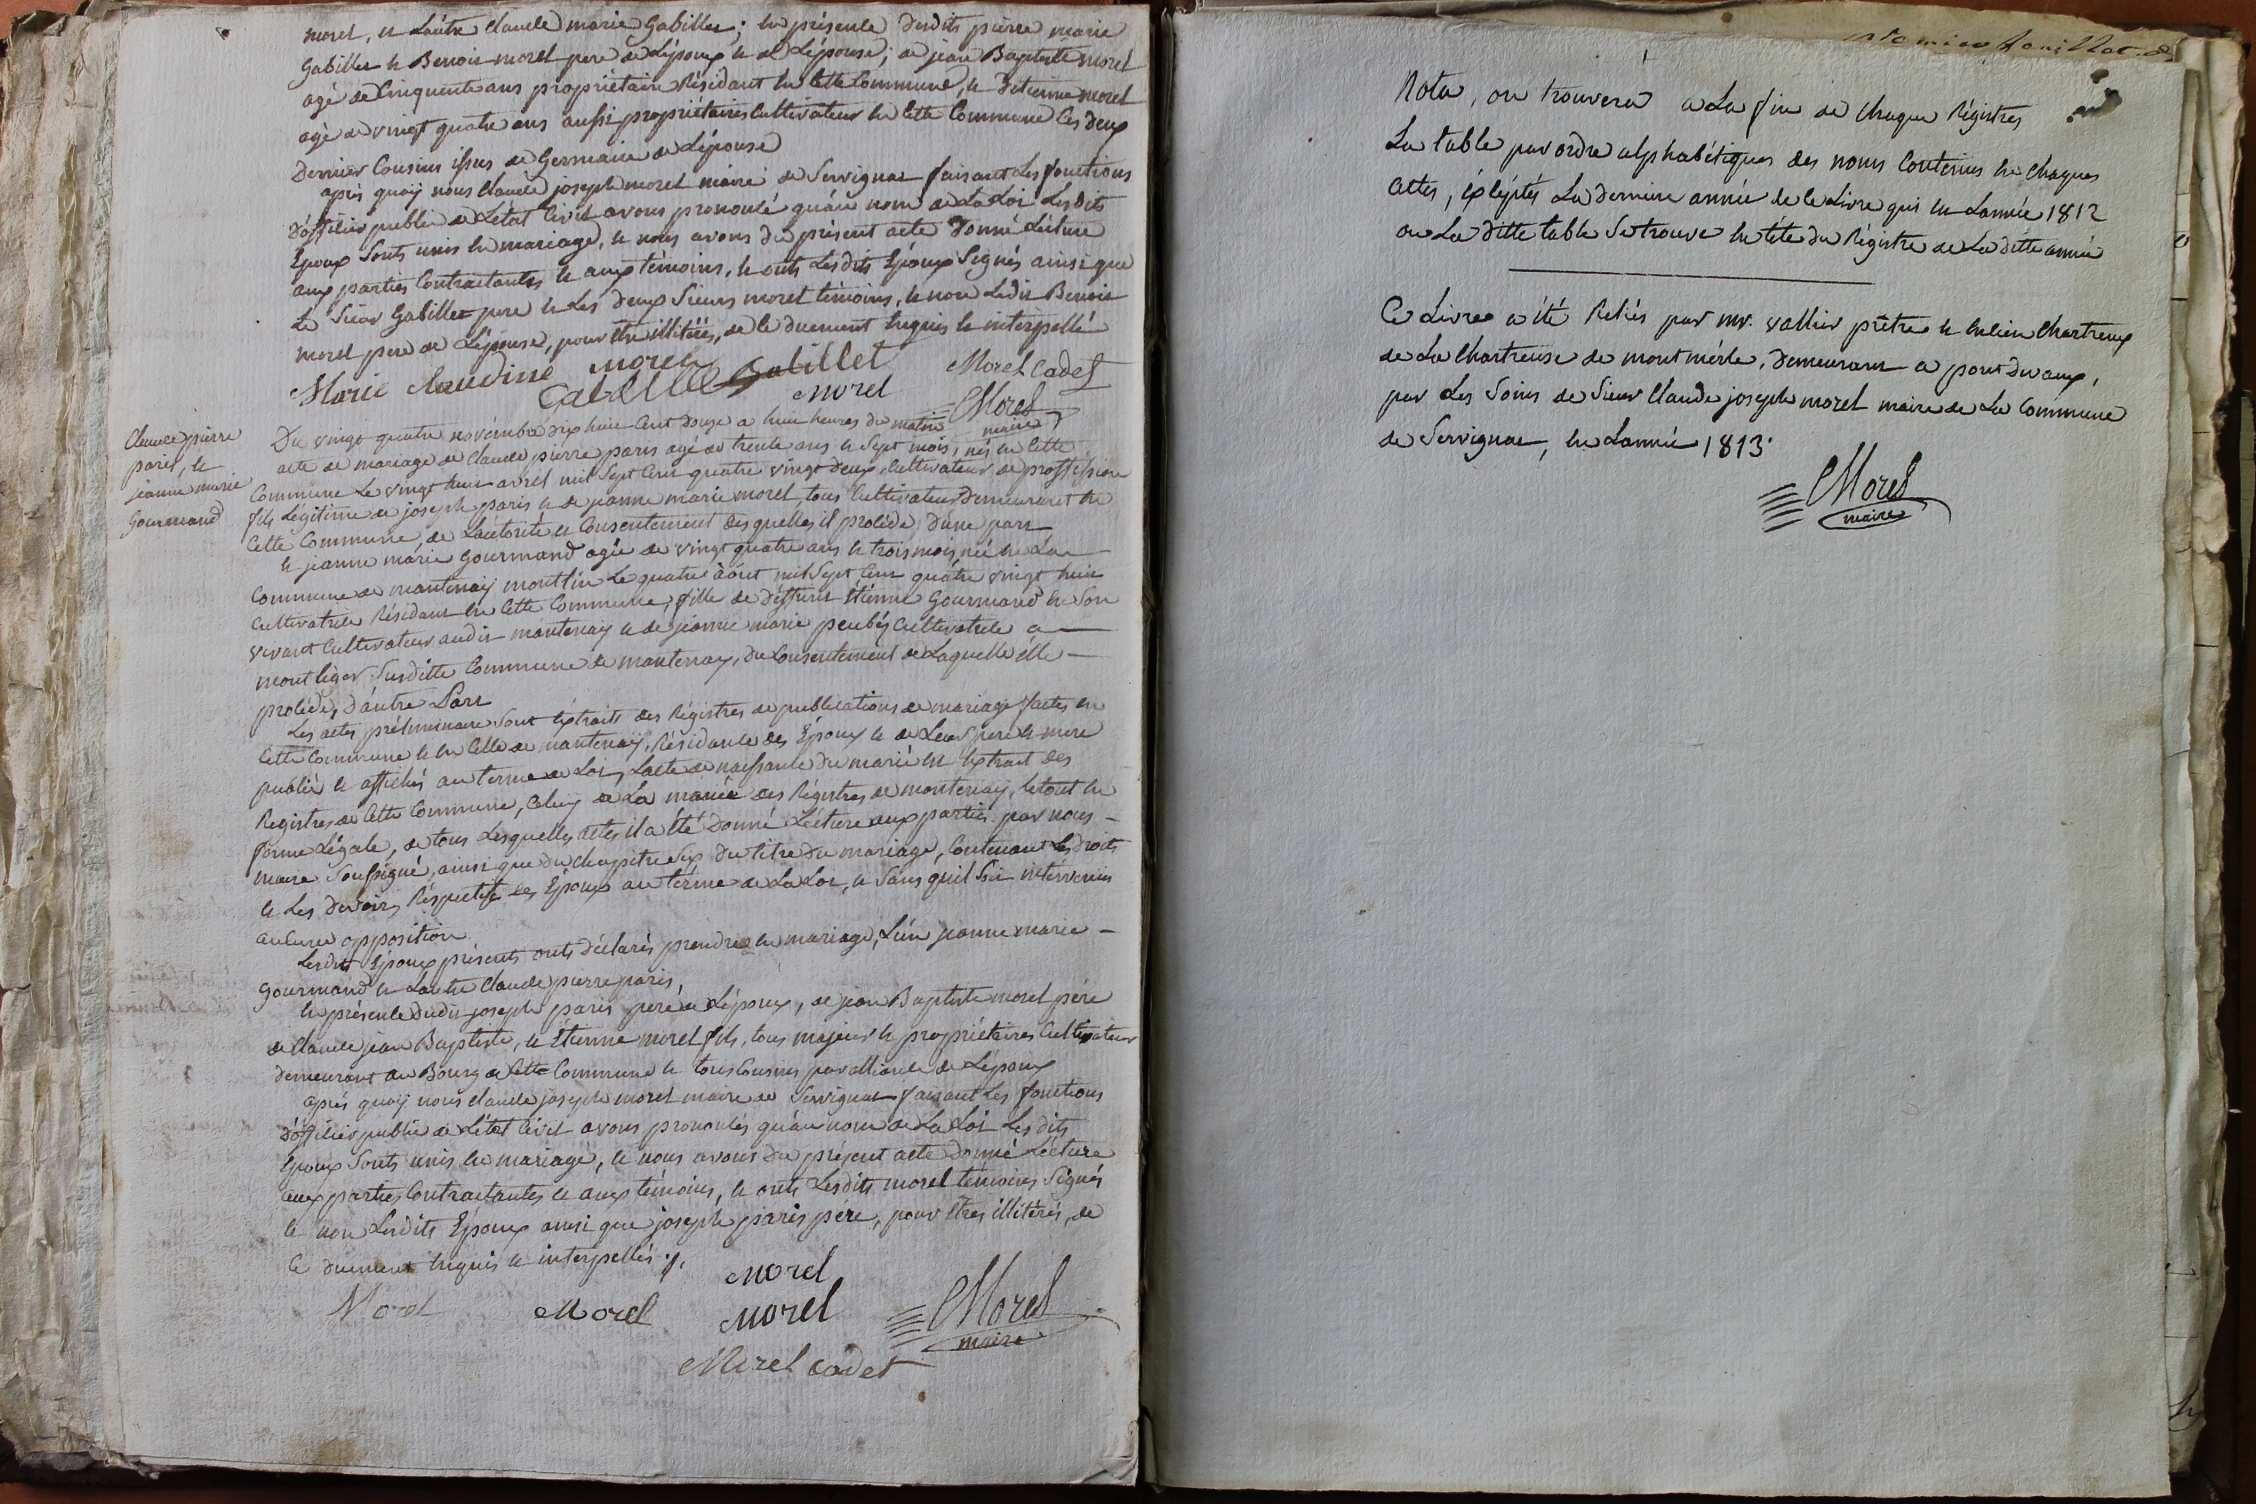 morel, et Lautre Claude marie Gabillet; en présence desdits pierre marie
Gabillet et Benoit morel pere de Lépoux et de Lépouse; de jean Baptiste morel
agé de Cinquente ans propriétaire Résidant en Cette Commune, et detienne morel
agé de vingt quatre ans aussi propriétaires Cultivateur en Cette Commune Ces deux
Dernier Cousins issus de Germaine de Lépouse
après quoÿ nous Claude joseph morel maire de Servignat faisant Les fonctions
D'officier public de L'état Civil avons prononcé qu'au nom de La Loi Lesdits
Epoux Sonts unis en mariage, et nous avons du présent acte Donné Lécture
aux parties Contractantes et aux témoins, et onts Lesdits Epoux Signés ainsi que
Le Sieur Gabillet pere et Les deux Sieurs morel témoins, et non Ledit Benoit
morel pere de Lépouse, pour être illitéré, de Ce duement enquis et interpellé
Marie Claudine Morel Gabillet Morel Cadet
Gabillet Morel Morel
maire
Claude pierre
paris, et
jeanne marie
Gourmand
Du vingt quatre novémbre dix huit Cent douze a huit heures du matin
acte de mariage de Claude pierre paris agé de trente ans et Sept mois, nés en Cette
Commune Le vingt huit avril mil Sept Cent quatre vingt deux, Cultivateur de proffession
fils Légitime de joseph paris et de jeanne marie morel tous Cultivateurs Demeurant en
Cette Commune, de Lautorité et Consentement desquelles il procéde, d'une part
et jeanne marie Gourmand agée de vingt quatre ans et trois mois, née en La
Commune de mantenaÿ montlin Le quatre août mil Sept Cent quatre vingt huit
Cultivatrice Résidant en Cette Commune, fille de deffunt Etienne Gourmand en Son
vivant Cultivateur audit mantenay et de jeanne marie Cultivatrice a
montliger Susditte Commune de mantenay, du Consentement de Laquelle élle
procéde, d'autre Part
Les actes préliminaire Sont éxtraits des Régistres de publications de mariage faites en
Cette Commune et en Celle de mantenaÿ, Résidance des Epoux et de Leur pere et mere
publiér et affichés au terme de Loi, Lacte de naissance du marié est Extrait des
Registres de Cette Commune, Celuy de La mariée des Régistres de mantenay, Le tout en
forme Légale, de tous Lesquelles actes il a été Donné Lécture aux parties par nous
maire Soussigné, ainsi que du Chapitre Six du titre du mariage, Contenant Les droits
et Les devoirs Réspectifs des Epoux au términe de La Loi, et Sans quil Soit intérvenus
aucune opposition
Lesdits Epoux présents onts déclarés prendre en mariage, L'un jeanne marie
Gourmand et Lautre Claude pierre paris,
en présence dudit joseph paris pere de Lépoux, de jean Baptiste morel pére
de Claude jean Baptiste, et Étienne morel fils, tous majeur et propriétaires Cultivateur
demeurant au Bourg de Cette Commune et tous Cousins par alliance de Lépoux
après quoÿ nous Claude joseph morel maire de Servignat faisant Les fonctions
D'officier public de L'état Civil avons prononcés qu'au nom de La Loi Les dits
Epoux Sonts unis en mariage, et nous avons du présent acte donné Lécture
aux parties Contractantes et aux témoins, et onts Lesdits morel témoins Signés
et non Lesdits Epoux ainsi que joseph paris pére, pour êtres illitérés, de
Ce duement enquis et interpellés ./.
Morel
Morel Morel Morel Morel
maire
Morel Cadet
Nota, on trouvera a La fin de Chaque Régistres
La table par ordre alphabétiques des noms Contenus en Chaques
actes, éxceptés La derniere année de Ce Livre qui est Lannée 1812
ou La ditte table Se trouve en tête du Régistre de La ditte année
Ce Livre a été Reliés par mr. vallier prêtre et encien Chartreux
de La Chartreuse de montmérle, Demeurant a pont devaux,
par Les Soins de Sieur Claude joseph morel maire de La Commune
de Servignat, en Lannée 1813.
Morel
maire